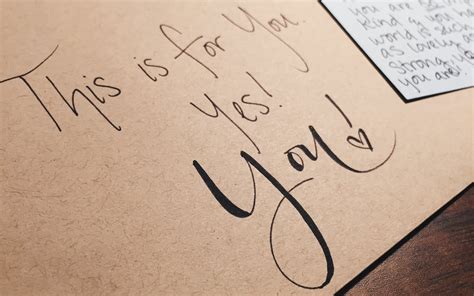 This is for You.
Yes!
You!
you are so
kind & your
world is such
as lovely
strong
you are!